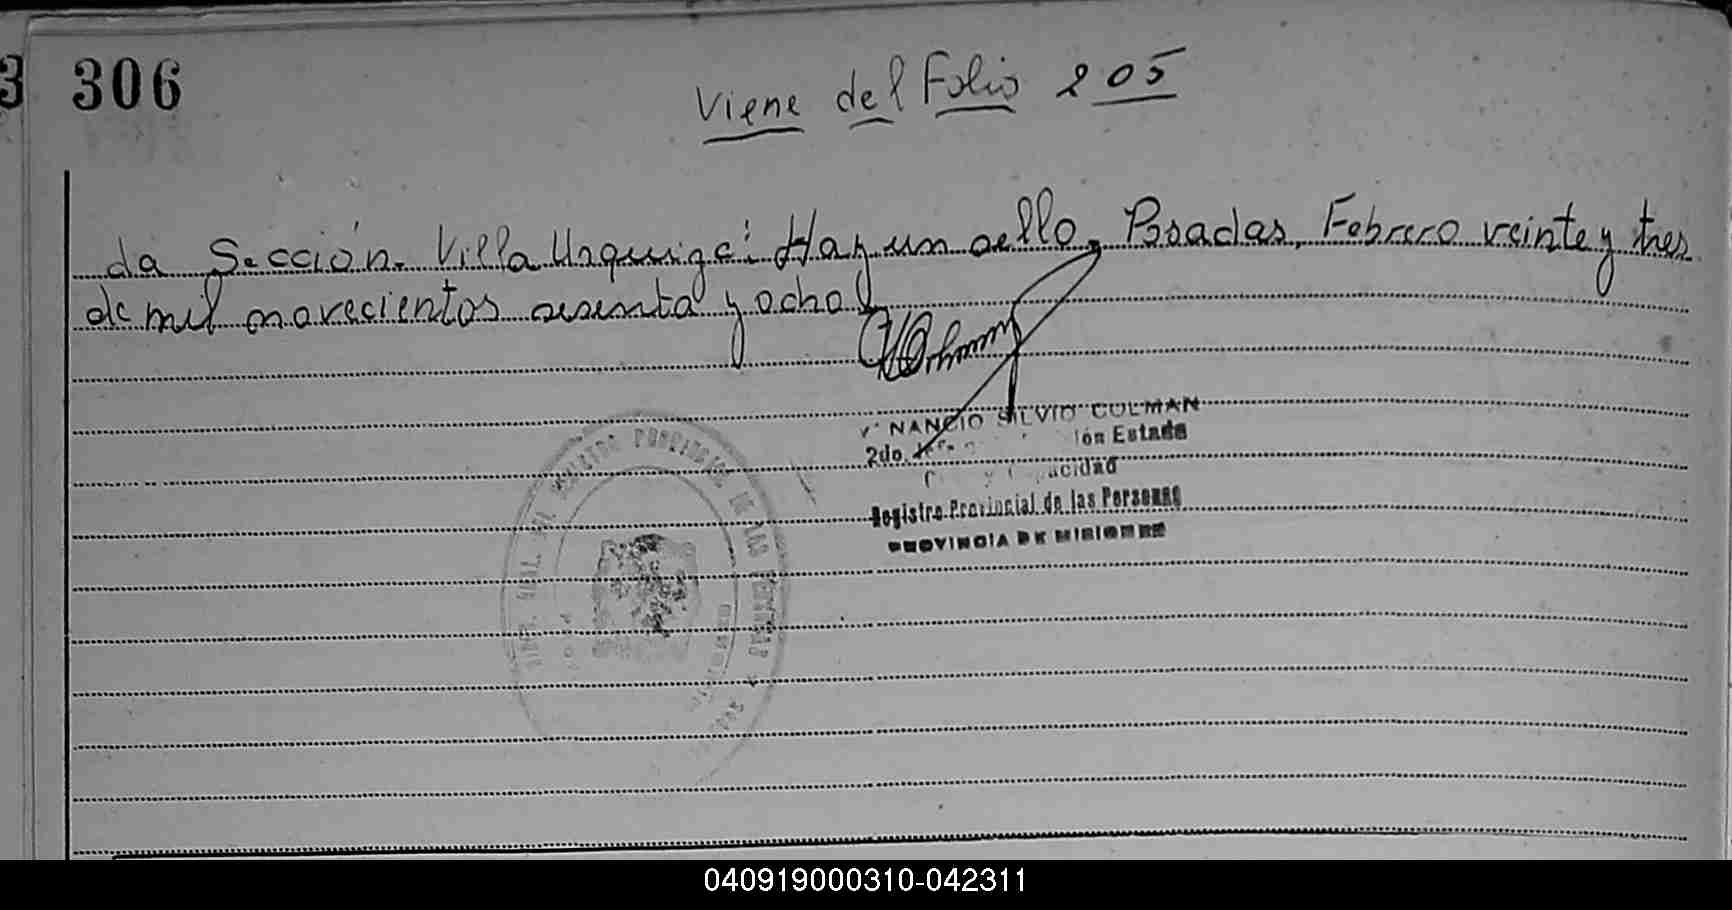 3 306
Viene del Folio 205
da Sección. Villa Urquiza: Hay un sello, Posadas, Febrero veinte y tres
de mil novecientos sesenta y ocho
NANCIO SILVIO COLMAN
2do. ión Estado
acidad
Registro Provincial de las Personas
PROVINCIA DE MISIONES
REGISTRO PROVINCIAL DE LAS PERSONAS
040919000310-042311